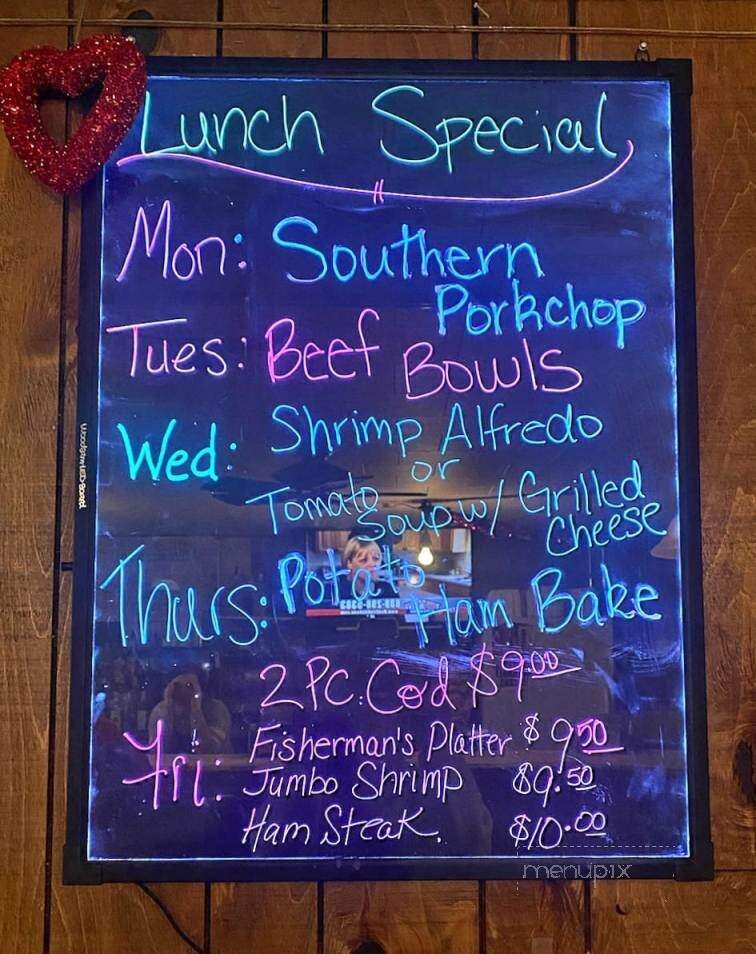 Lunch Special
Mon: Southern
Porkchop
Tues: Beef Bowls
Wed: Shrimp Alfredo
or
Tomato Soup w/ Grilled Cheese
Thurs: Potato Ham Bake
2 PC. Cod $9.00
Fri: Fisherman's Platter $9.50
Jumbo Shrimp $9.50
Ham Steak. $10.00
menupix